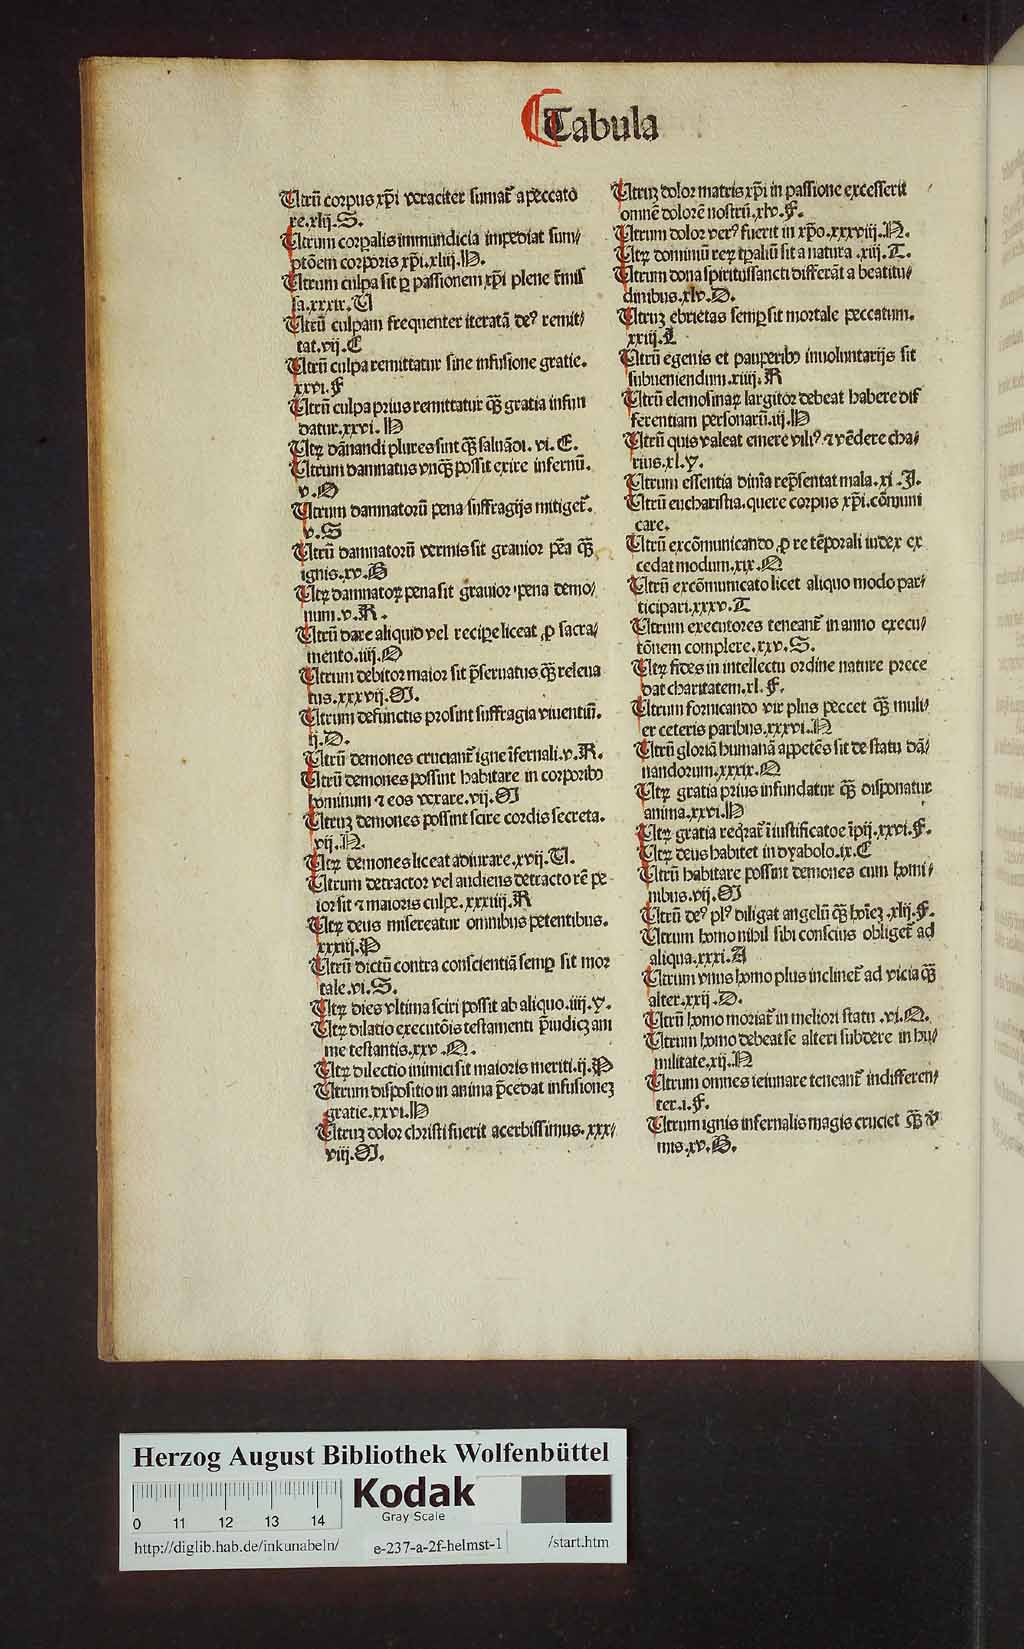 Tabula
Utrũ corpus xp̃i veraciter sumat᷑ a peccato
re.xlij.S.
Utrum corꝑalis immundicia impediat sum/
ptõem corporis xp̃i.xliij.N.
Utrum culpa sit ꝑ passionem xp̃i plene r̃mis
sa.xxxix.U
Utrũ culpam frequenter iteratã deꝰ remit/
tat.vij.E
Utrũ culpa remittatur sine infusione gratie.
xxvi.F
Utrũ culpa prius remittatur qꝫ̃ gratia infun
datur.xxvi.N
Utrꝝ dãnandi plures sint qꝫ̃ saluãdi.vi.E.
Utrum damnatus vnqꝫ̃ possit exire infernũ.
v.Q
Utrum damnatorũ pena suffragijs mitiget᷑.
v.S
Utrũ damnatorũ vermis sit grauior pẽa qꝫ̃
ignis.xv.B
Utrꝝ damnatoꝝ pena sit grauior pena demo/
num.v.R.
Utrũ dare aliquid vel reciꝑe liceat ꝓ sacra/
mento.iiij.O
Utrum debitor maior sit p̃seruatus qꝫ̃ releua
tus.xxxvij.M.
Utrum defunctis prosint suffragia viuentiũ.
ij.D.
Utrũ demones cruciant᷑ igne ĩfernali.v.R.
Utrũ demones possint habitare in corporibꝰ
hominum ⁊ eos vexare.vij.M
Utruꝫ demones possint scire cordis secreta.
vij.N.
Utrꝝ demones liceat adiurare.xvij.U.
Utrum detractor vel audiens detractorẽ pe
ior sit ⁊ maioris culpe.xxxiiij.R
Utrꝝ deus misereatur omnibus petentibus.
xxxiij.P
Utrũ dictũ contra conscientiã semꝑ sit mor
tale.vi.S.
Utrꝝ dies vltima sciri possit ab aliquo.iiij.Y.
Utrꝝ dilatio executõis testamenti p̃iudicꝫ ani
me testantis.xxv.Q.
Utrꝝ dilectio inimici sit maioris meriti.ij.P
Utrum dispositio in anima p̃cedat infusioneꝫ
gratie.xxvi.N
Utruꝫ dolor christi fuerit acerbissimus.xxx/
viij.M.
Utruꝫ dolor matris xp̃i in passione excesserit
omnẽ dolorẽ nostrũ.xlv.F.
Utrum dolor verꝰ fuerit in xp̃o.xxxviij.N.
Utrꝝ dominiũ reꝝ tp̃aliũ sit a natura.xiij.T.
Utrum dona spiritussancti differãt a beatitu/
dinibus.xlv.D.
Utruꝫ ebrietas semꝑ sit mortale peccatum.
xxiij.L
Utrũ egenis et pauperibꝰ inuoluntarijs sit
subueniendum.xiiij.R
Utrũ elemosinaꝝ largitor debeat habere dif
ferentiam personarũ.iij.N
Utrũ quis valeat emere viliꝰ ⁊ vẽdere cha/
rius.xl.Y.
Utrum essentia diuĩa rep̃sentat mala.xi.J.
Utrũ eucharistia.quere corpus xp̃i.cõmuni
care.
Utrũ excõmunicando ꝓ re tẽporali iudex ex
cedat modum.xix.Q
Utrũ excõmunicato licet aliquo modo par/
ticipari.xxxv.T
Utrum executores teneant᷑ in anno execu/
tõnem complere.xxv.S.
Utrꝝ fides in intellectu ordine nature prece
dat charitatem.xl.F.
Utrum fornicando vir plus peccet qꝫ̃ muli/
er ceteris paribus.xxxvi.N
Utrũ gloriã humanã appetẽs sit de statu dã/
nandorum.xxxix.Q
Utrꝝ gratia prius infundatur qꝫ̃ disponatur
anima.xxvi.N
Utrꝝ gratia req̃rat᷑ ĩ iustificatõe ĩpij.xxvi.F.
Utrꝝ deus habitet in dyabolo.ix.E
Utrũ habitare possint demones cum homi/
nibus.vij.M
Utrũ deꝰ plꝰ diligat angelũ qꝫ̃ hoĩeꝫ.xlij.F.
Utrum homo nihil sibi conscius obliget᷑ ad
aliqua.xxxi.A
Utrum vnus homo plus inclinet᷑ ad vicia qꝫ̃
alter.xxij.D.
Utrũ homo moriat᷑ in meliori statu.vi.Q.
Utrum homo debeat se alteri subdere in hu/
militate.xij.N
Utrum omnes ieiunare teneant᷑ indifferen/
ter.i.F.
Utrum ignis infernalis magis cruciet qꝫ̃ v̓
mis.xv.B.
Herzog August Bibliothek Wolfenbüttel
0 11 12 13 14
Kodak
Gray Scale
http://diglib.hab.de/inkunabeln/ e-237-a-2f-helmst-1 /start.htm